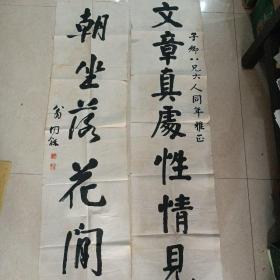 文章真處性情見
子鄉八兄大人同年雅正
朝坐落花間
翁同龢